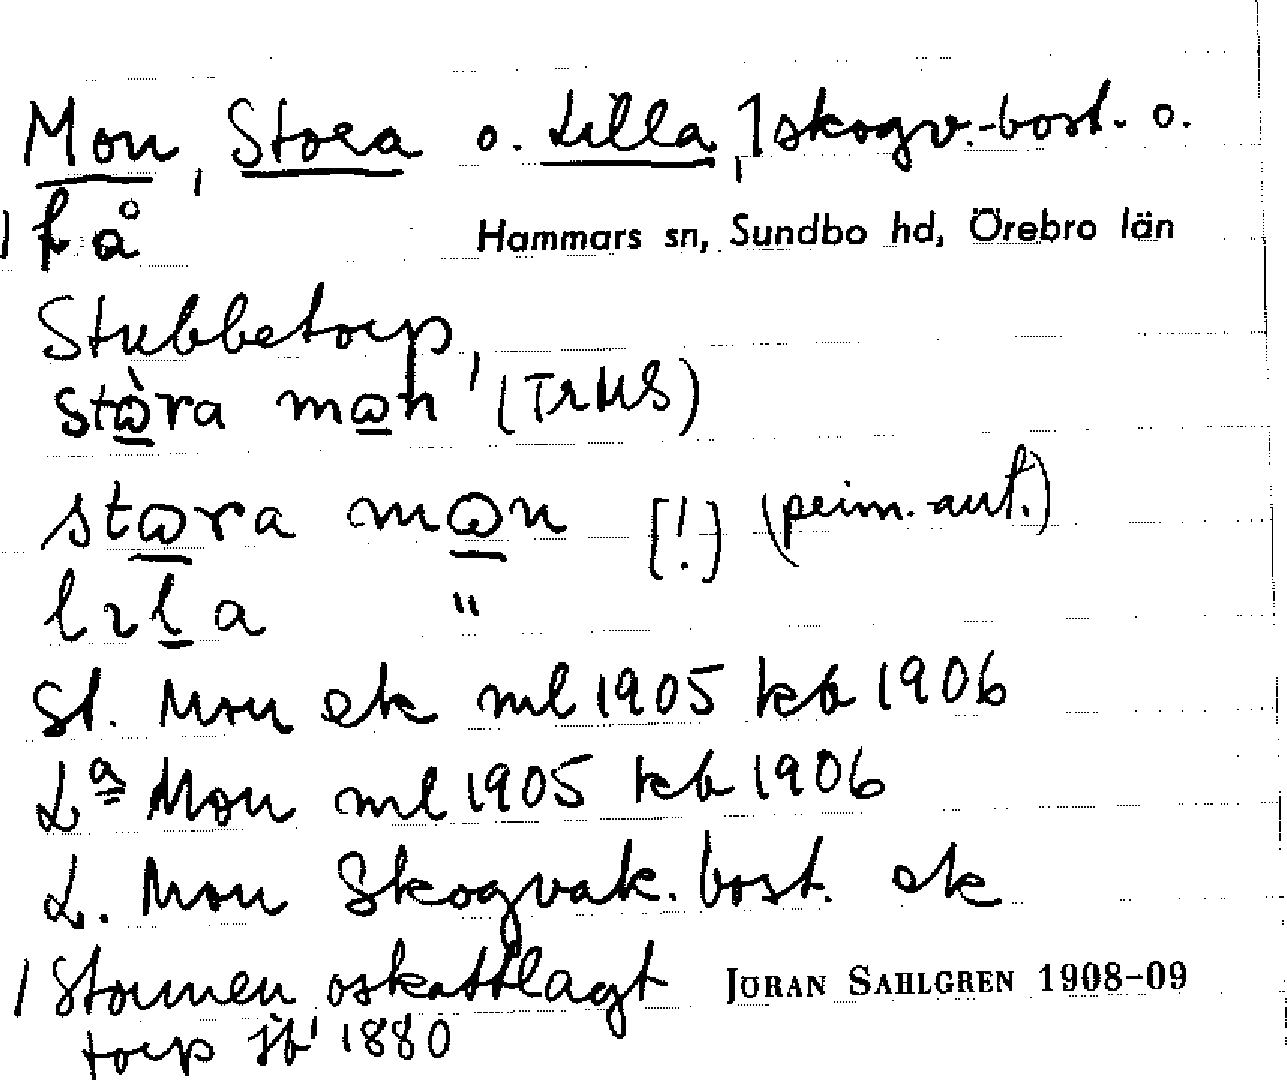 Mon, Stora o. Lilla, 1 skogv.-bost. o.
1 t på
Hammars sn, Sundbo hd, Örebro län
Stubbetorp,
stɷ̀ra mɷn (TrMS)
stɷra mɷn [!] (peim. aut.)
lɩla "
St. Mon ek ml 1905 kb 1906
Lª Mon ml 1905 kb 1906
L. Mon Skogvak. bost. ek
1 Stormen oskattlagt
JÖRAN SAHLGREN 1908-09
torp jb 1880